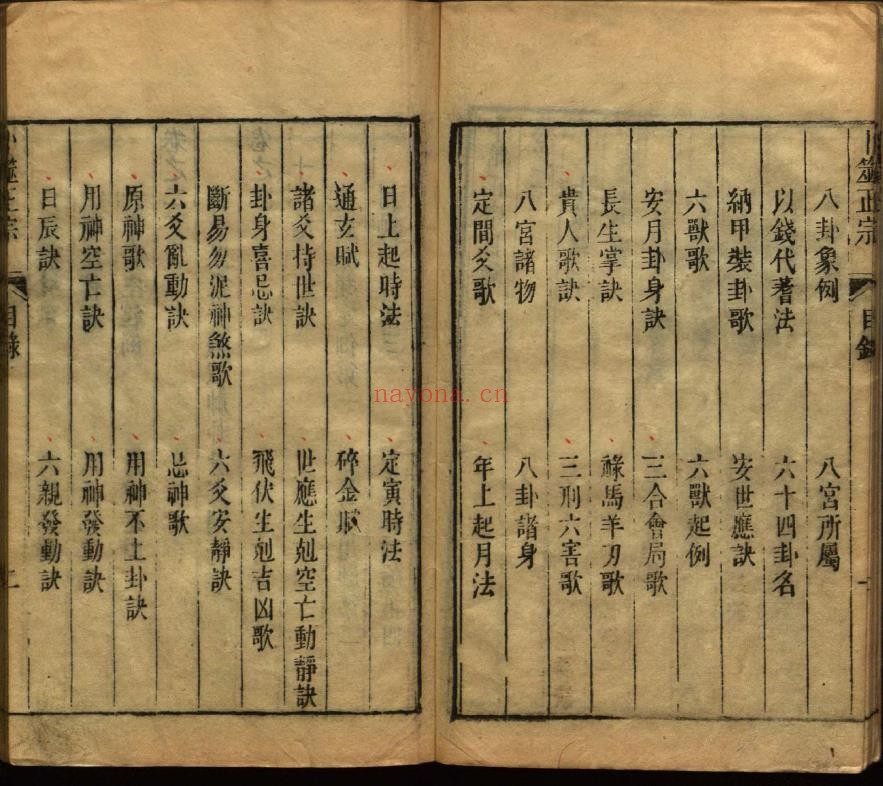 卜筮正宗 目錄
八卦象例 八宮所屬
以錢代蓍法 六十四卦名
納甲裝卦歌 安世應訣
六獸歌 六獸起例
安月卦身訣 三合會局歌
長生掌訣 祿馬羊刃歌
貴人歌訣 三刑六害歌
八宮諸物 八卦諸身
定間爻歌 年上起月法
日上起時法 定寅時法
通玄賦 碎金賦
諸爻持世訣 世應生剋空亡動靜訣
卦身喜忌訣 飛伏生剋吉凶歌
斷易勿泥神煞歌 六爻安靜訣
六爻亂動訣 忌神歌
原神歌 用神不上卦訣
用神空亡訣 用神發動訣
日辰訣 六親發動訣
卜筮正宗 目錄 二
nayona.cn